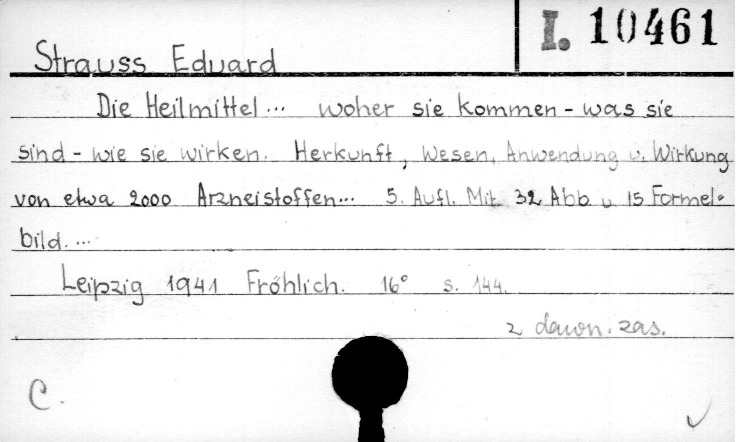 I. 10461
Strauss Eduard
Die Heilmittel... woher sie kommen - was sie
sind - wie sie wirken. Herkunft, Wesen, Anwendung u. Wirkung
von etwa 2000 Arzneistoffen... 5. Aufl. Mit 32 Abb. u 15 Formel-
bild. ...
Leipzig 1941 Fröhlich. 16° s. 144.
z dawn. zas.
C.